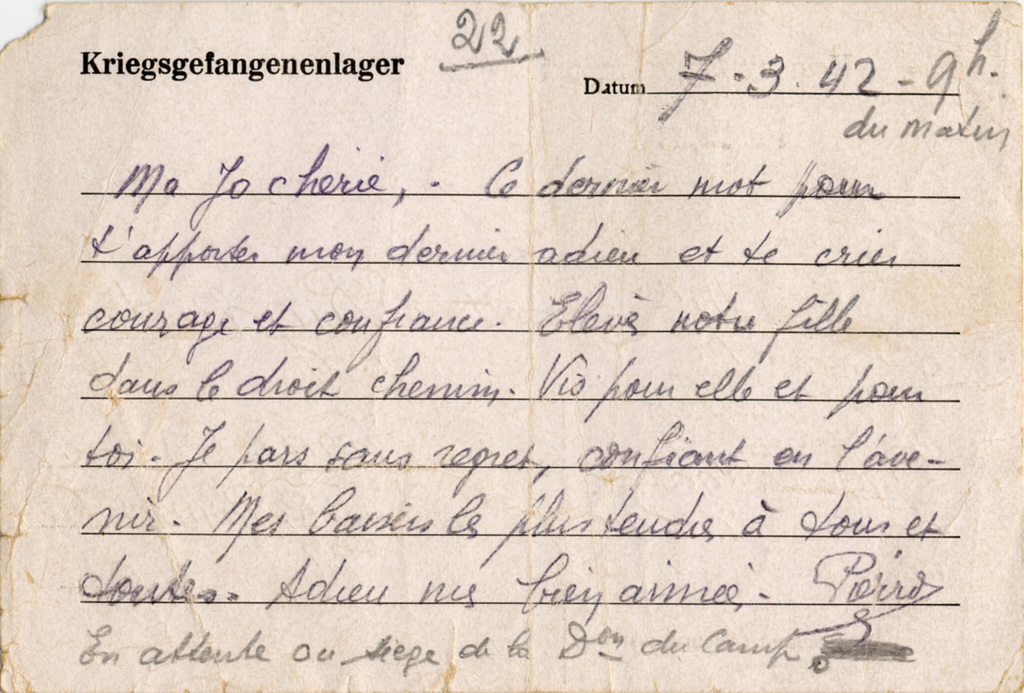 22
Kriegsgefangenenlager
Datum 7-3.42-9h.
du matin
Ma Jo cherie, . Ce dernier mot pour
t'apporter mon dernier adieu et te crier
courage et confiance. Elève notre fille
dans le droit chemin. Vis pour elle et pour
toi. Je pars sans regret, confiant en l'ave-
nir. Mes baisers les plus tendres à tous et
toutes. Adieu mes bien aimés. Pierre
En attente au siège de la Don du Camp.